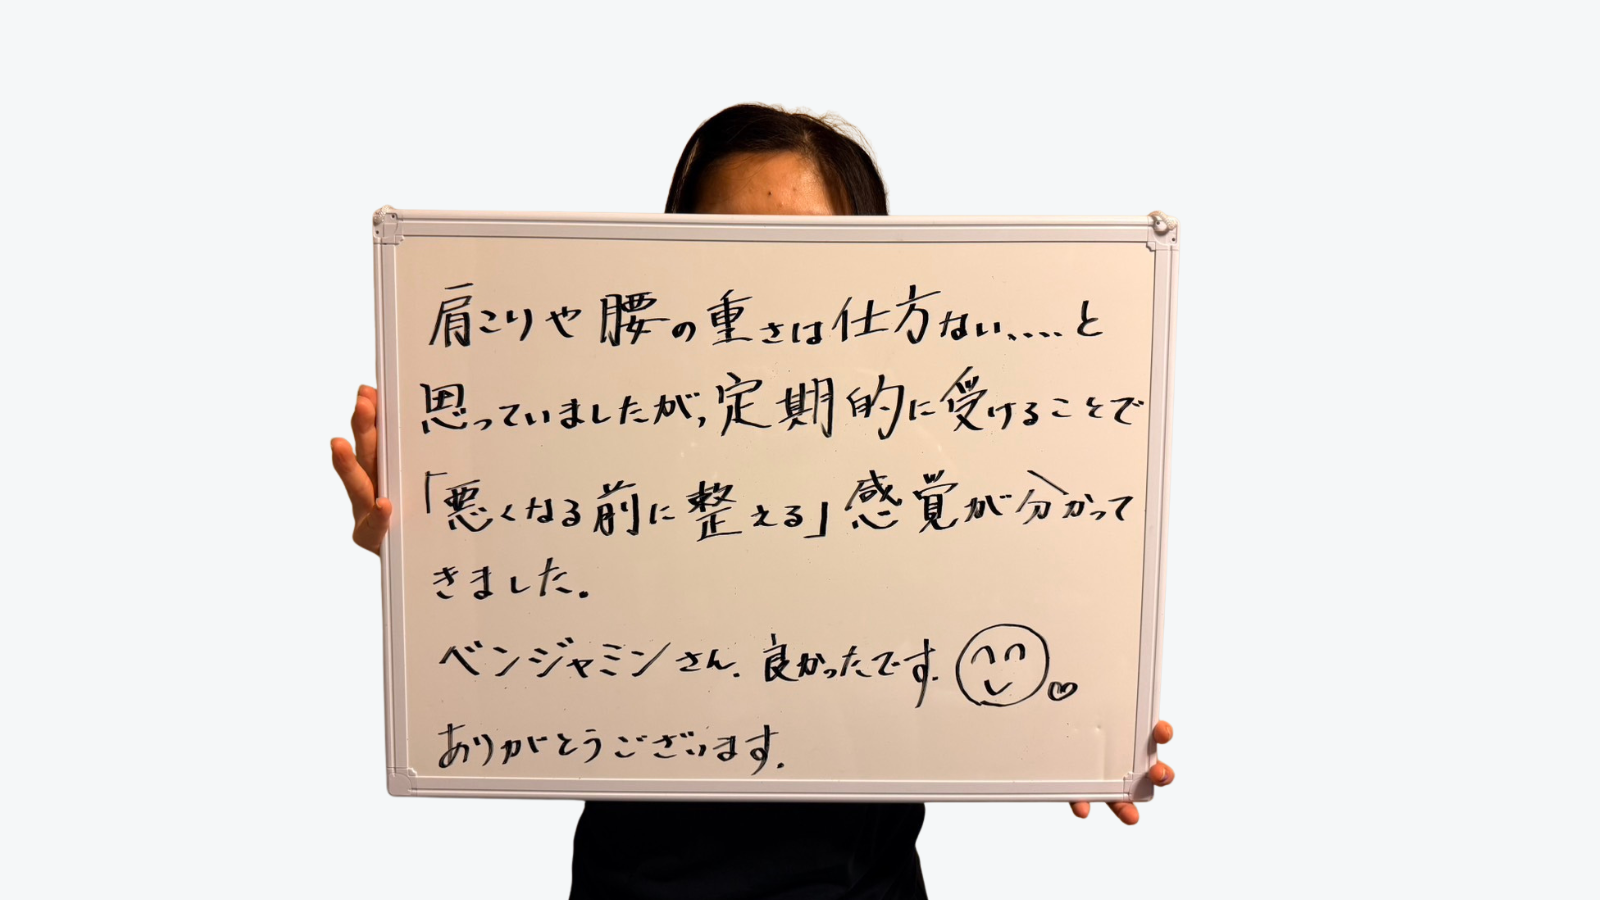 肩こりや腰の重さは仕方ない....と
思っていましたが、定期的に受けることで
「悪くなる前に整える」感覚が分かって
きました。
ベンジャミンさん、良かったです。
ありがとうございます。